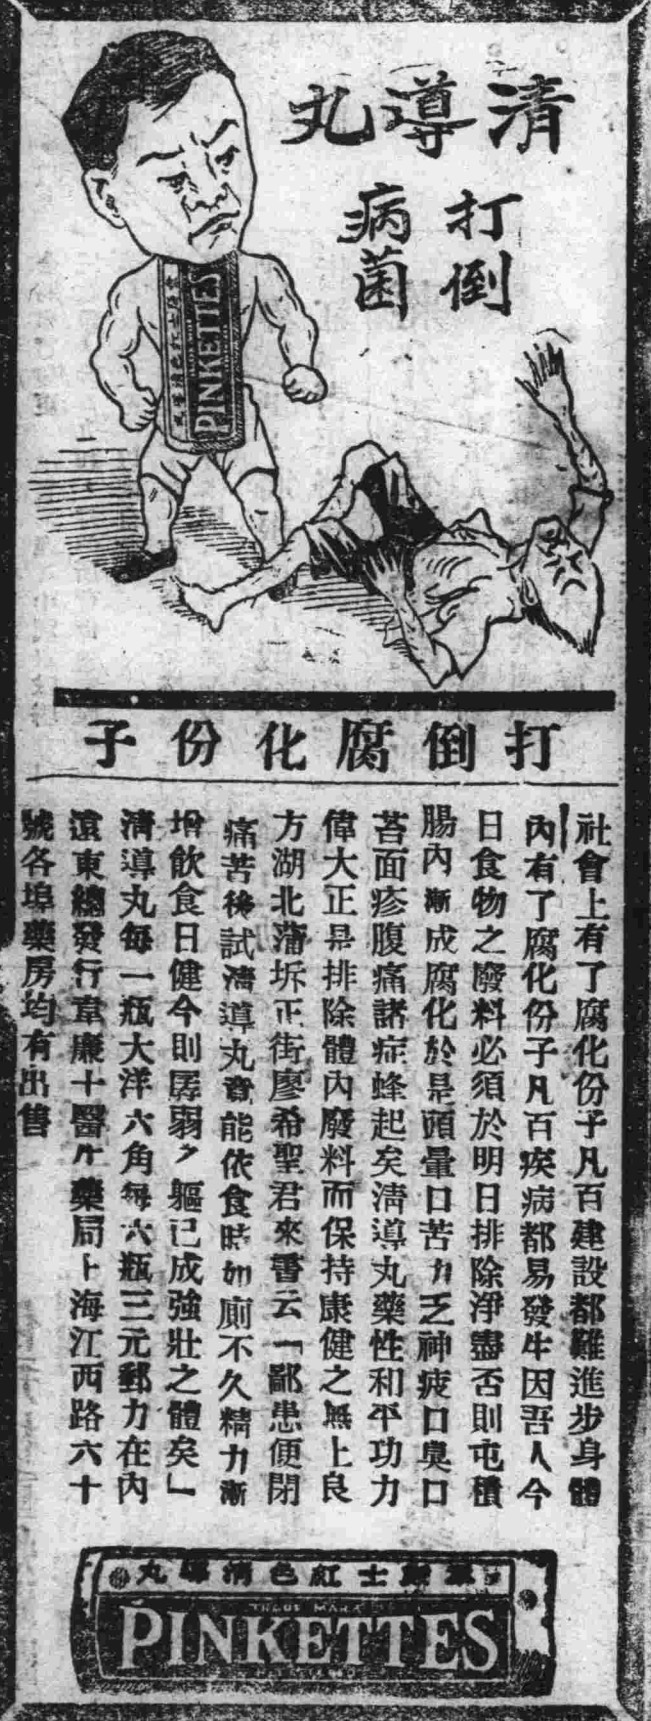 清導丸
打倒
病菌
PINKETTES
打倒腐化份子
社會上有了腐化份子凡百建設都難進步身體
內有了腐化份子凡百疾病都易發生因吾人今
日食物之廢料必須於明日排除淨盡否則屯積
腸內漸成腐化於是頭暈口苦力乏神疲口臭口
苔面疹腹痛諸症蜂起矣清導丸藥性和平功力
偉大正是排除體內廢料而保持康健之無上良
方湖北蒲圻正街廖希聖君來書云「鄙患便閉
痛苦後試清導丸竟能依食時如廁不久精力漸
增飲食日健今則孱弱之軀已成強壯之體矣」
清導丸每一瓶大洋六角每六瓶三元郵力在內
遠東總發行韋廉士醫生藥局上海江西路六十
號各埠藥房均有出售
士紅色清導丸
TRADE MARK
PINKETTES